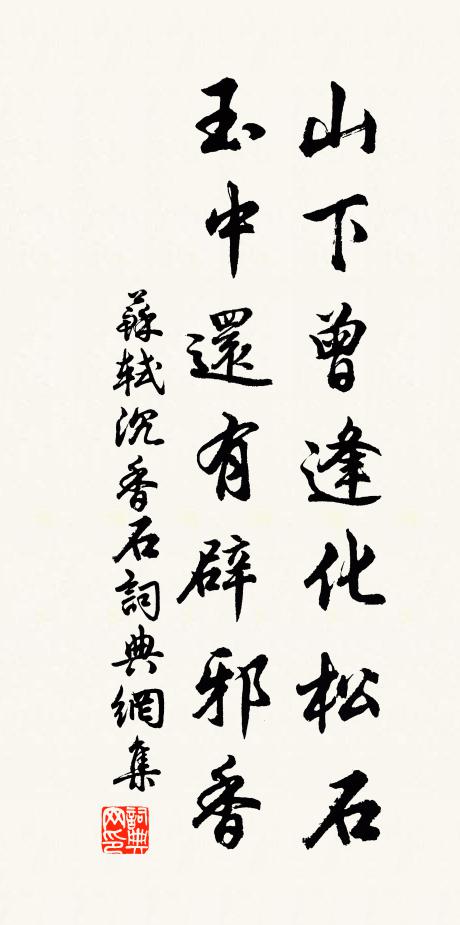 山下曾逢化松石
玉中還有辟邪香
蘇軾沉香石詞典網集
詞典
网印